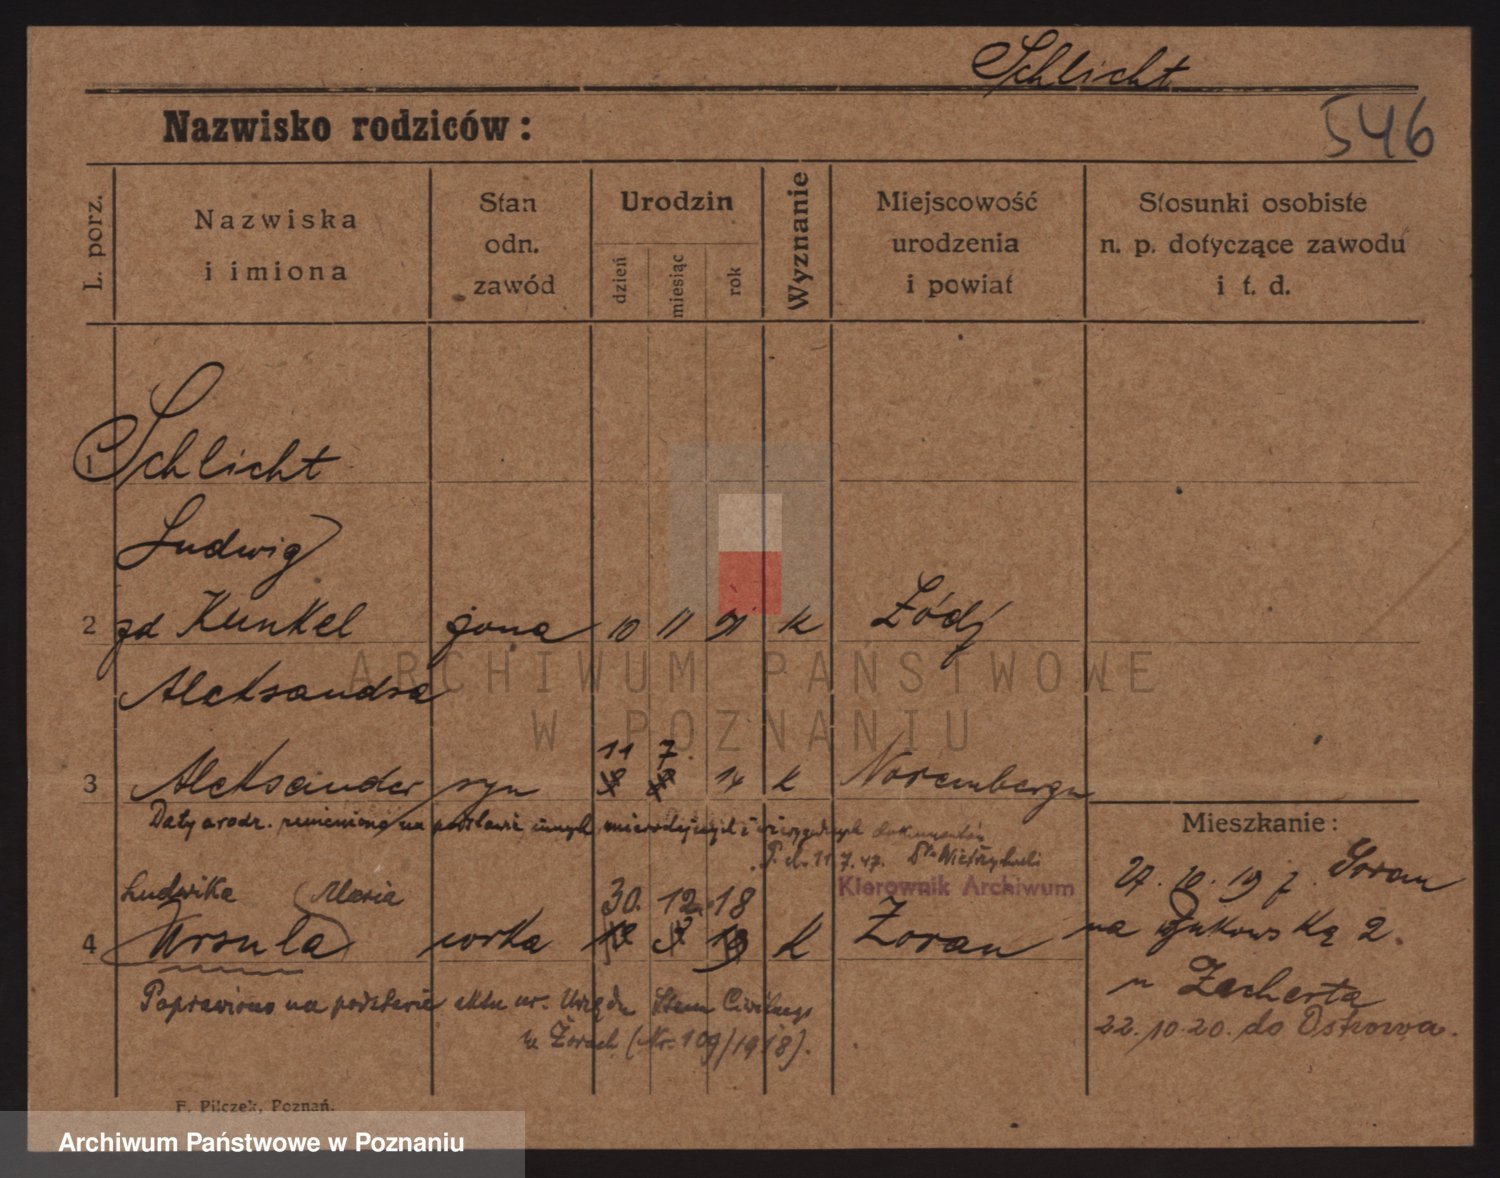 Schlicht
Nazwisko rodziców:
546
L. porz.
Nazwiska
i imiona
Stan
odn.
zawód
Urodzin
dzień
miesiąc
rok
Wyznanie
Miejscowość
urodzenia
i powiat
Stosunki osobiste
n. p. dotyczące zawodu
i t. d.
1 Schlicht
Ludwig
2 zd Kunkel żona 10 11 91 k Łódź
Aleksandra
ARCHIWUM PAŃSTWOWE
W POZNANIU
11 7
3 Aleksander syn 14 k Noremberga
Daty urodz. zmieniono na podstawie innych dokumentów
11.7.47.
Kierownik Archiwum
Mieszkanie:
27.10.19 z Zoran
Ludwika Maria 30. 12. 18
4 Ursula córka k Zoran
na Żukowską 2.
u Zacherta
22.10.20. do Ostrowa.
Poprawiono na podstawie aktu ur. Urzędu Stanu Cywilnego
w Żorach (Nr. 109/1918).
F. Pilczek, Poznań.
Archiwum Państwowe w Poznaniu